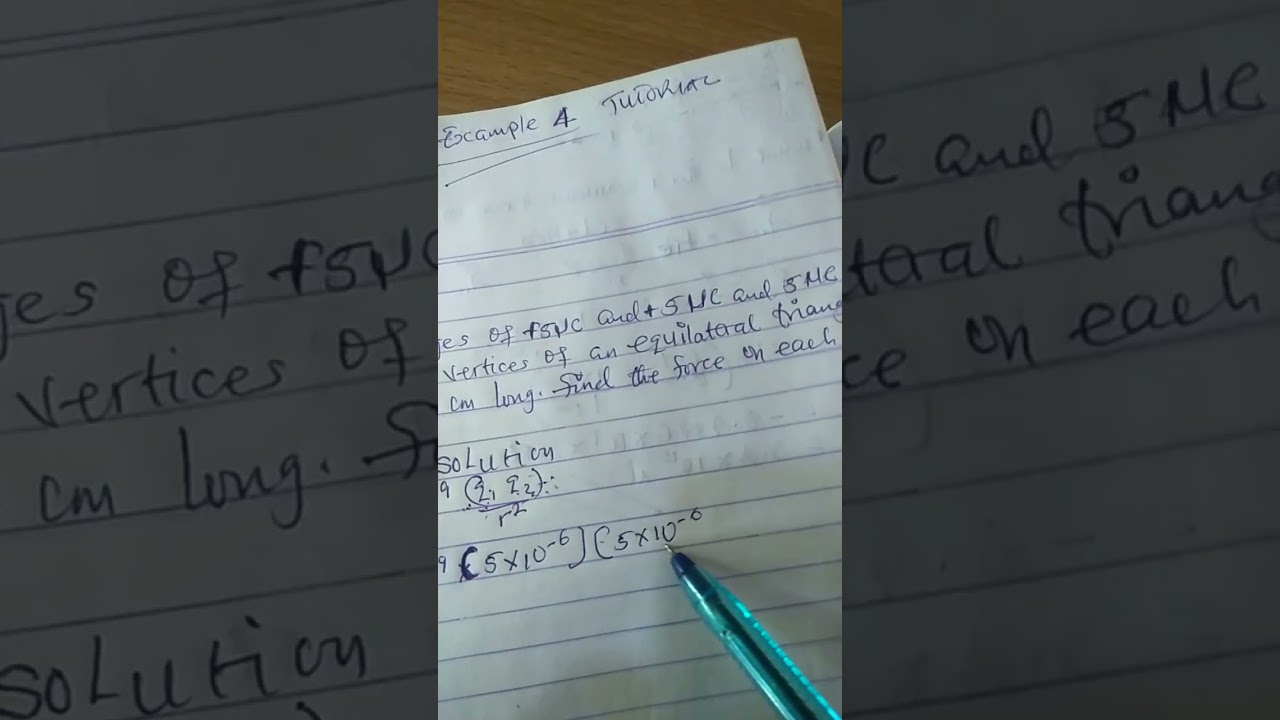 Example 4 TUTORIAL
es of +5μC and +5μC and 5μC
vertices of an equilateral triang
cm long. find the force on each
solution
9 (q1 q2)
r²
9 (5×10⁻⁶] (5×10⁻⁶